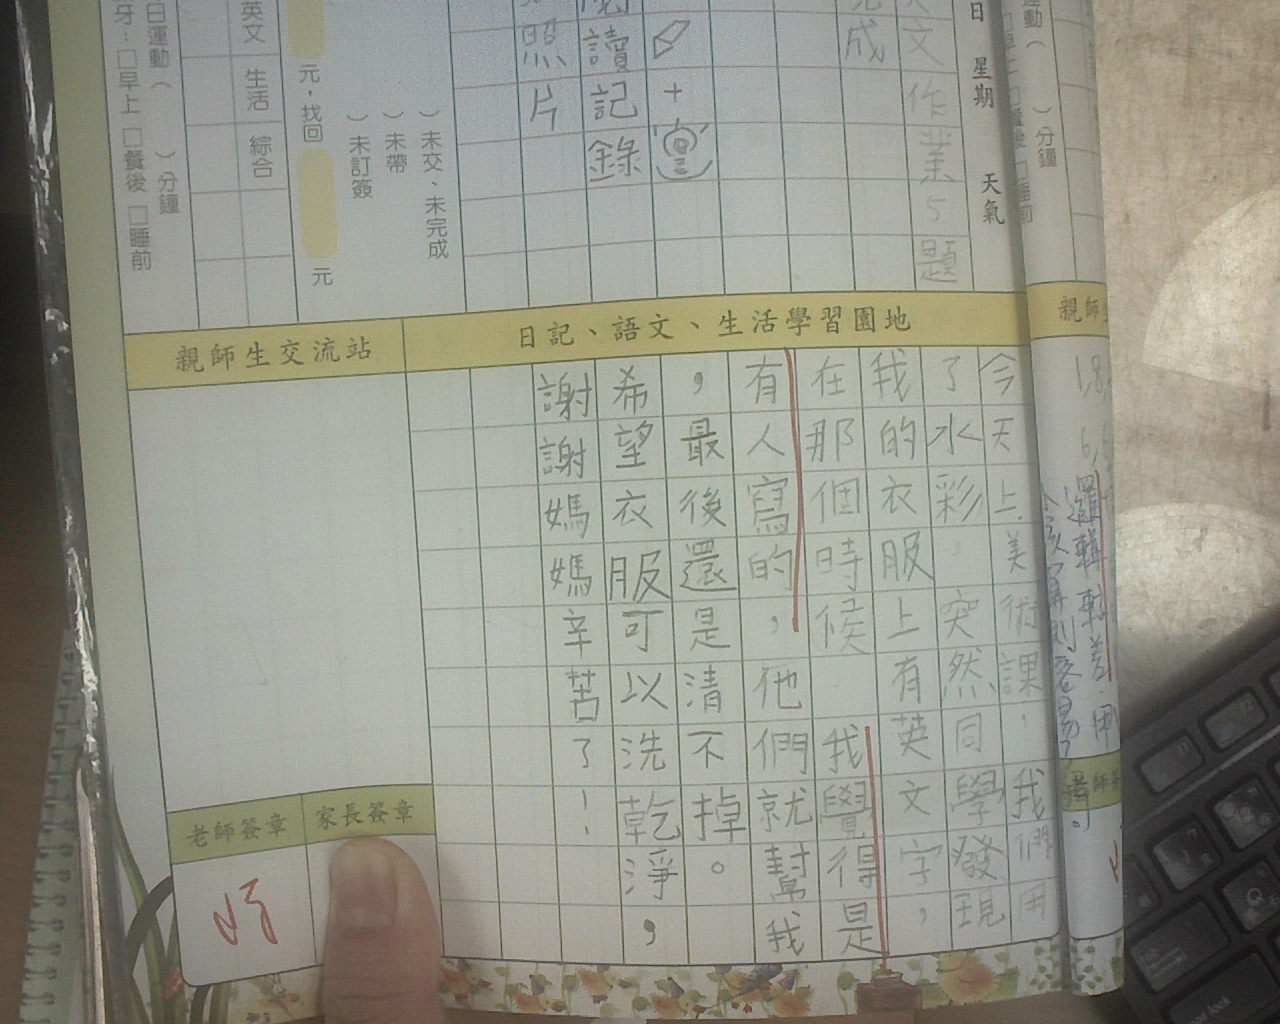 星期
天氣
文作業5題
完成
＋
閱讀記錄
照片
）未交、未完成
）未帶
）未訂簽
元，找回
元
英文 生活 綜合
日運動（ ）分鐘
牙：□早上 □餐後 □睡前
日記、語文、生活學習園地
今天上美術課，我們用
了水彩，突然同學發現
我的衣服上有英文字，
在那個時候，我覺得是
有人寫的，他們就幫我
，最後還是清不掉。
希望衣服可以洗乾淨，
謝謝媽媽辛苦了！
親師生交流站
老師簽章
家長簽章